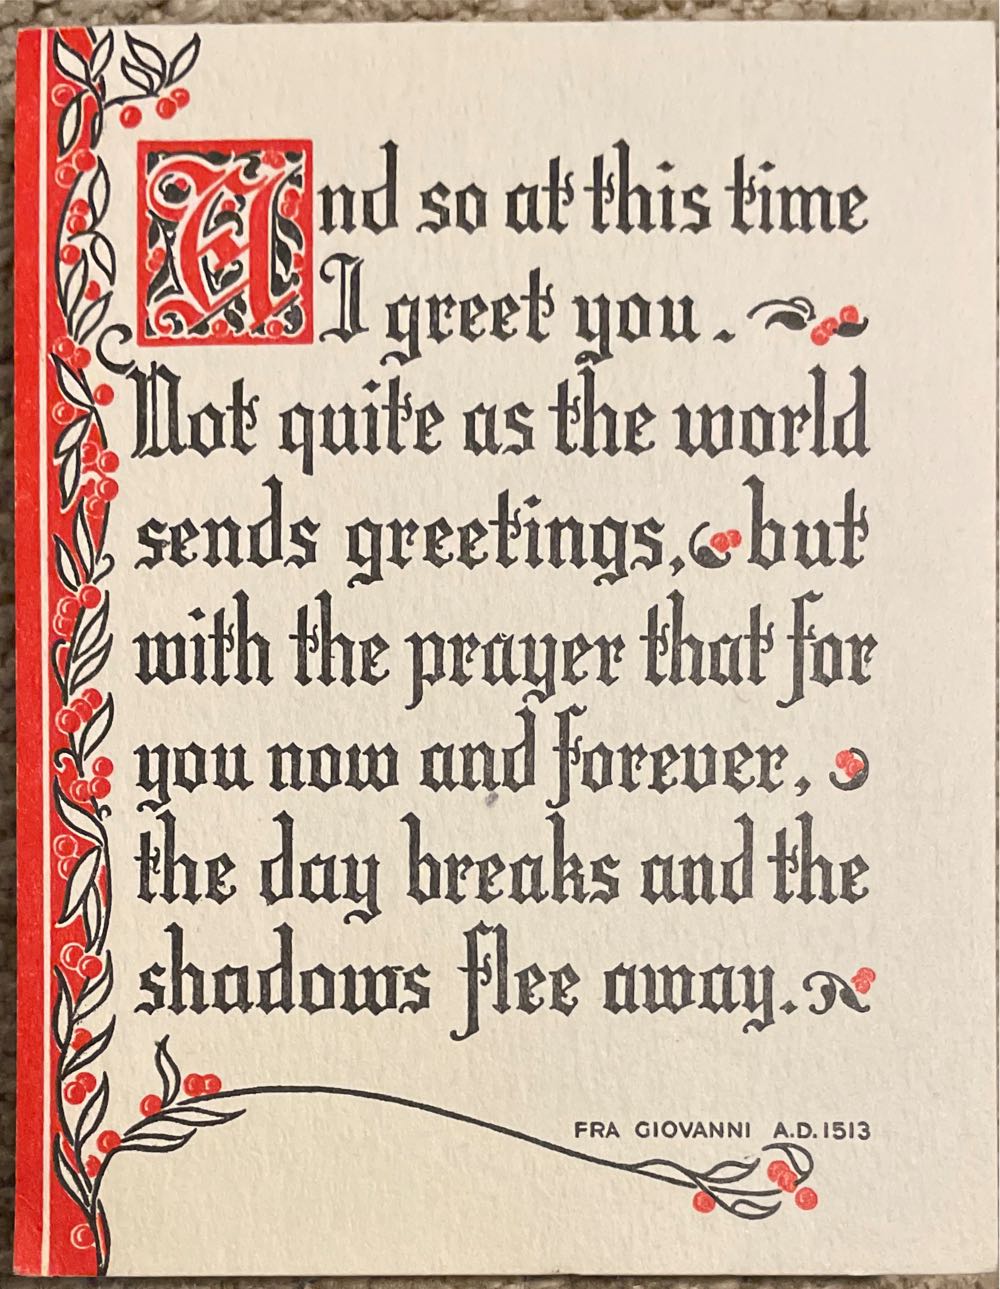 And so at this time
I greet you.
Not quite as the world
sends greetings, but
with the prayer that for
you now and forever,
the day breaks and the
shadows flee away.
FRA GIOVANNI A.D. 1513